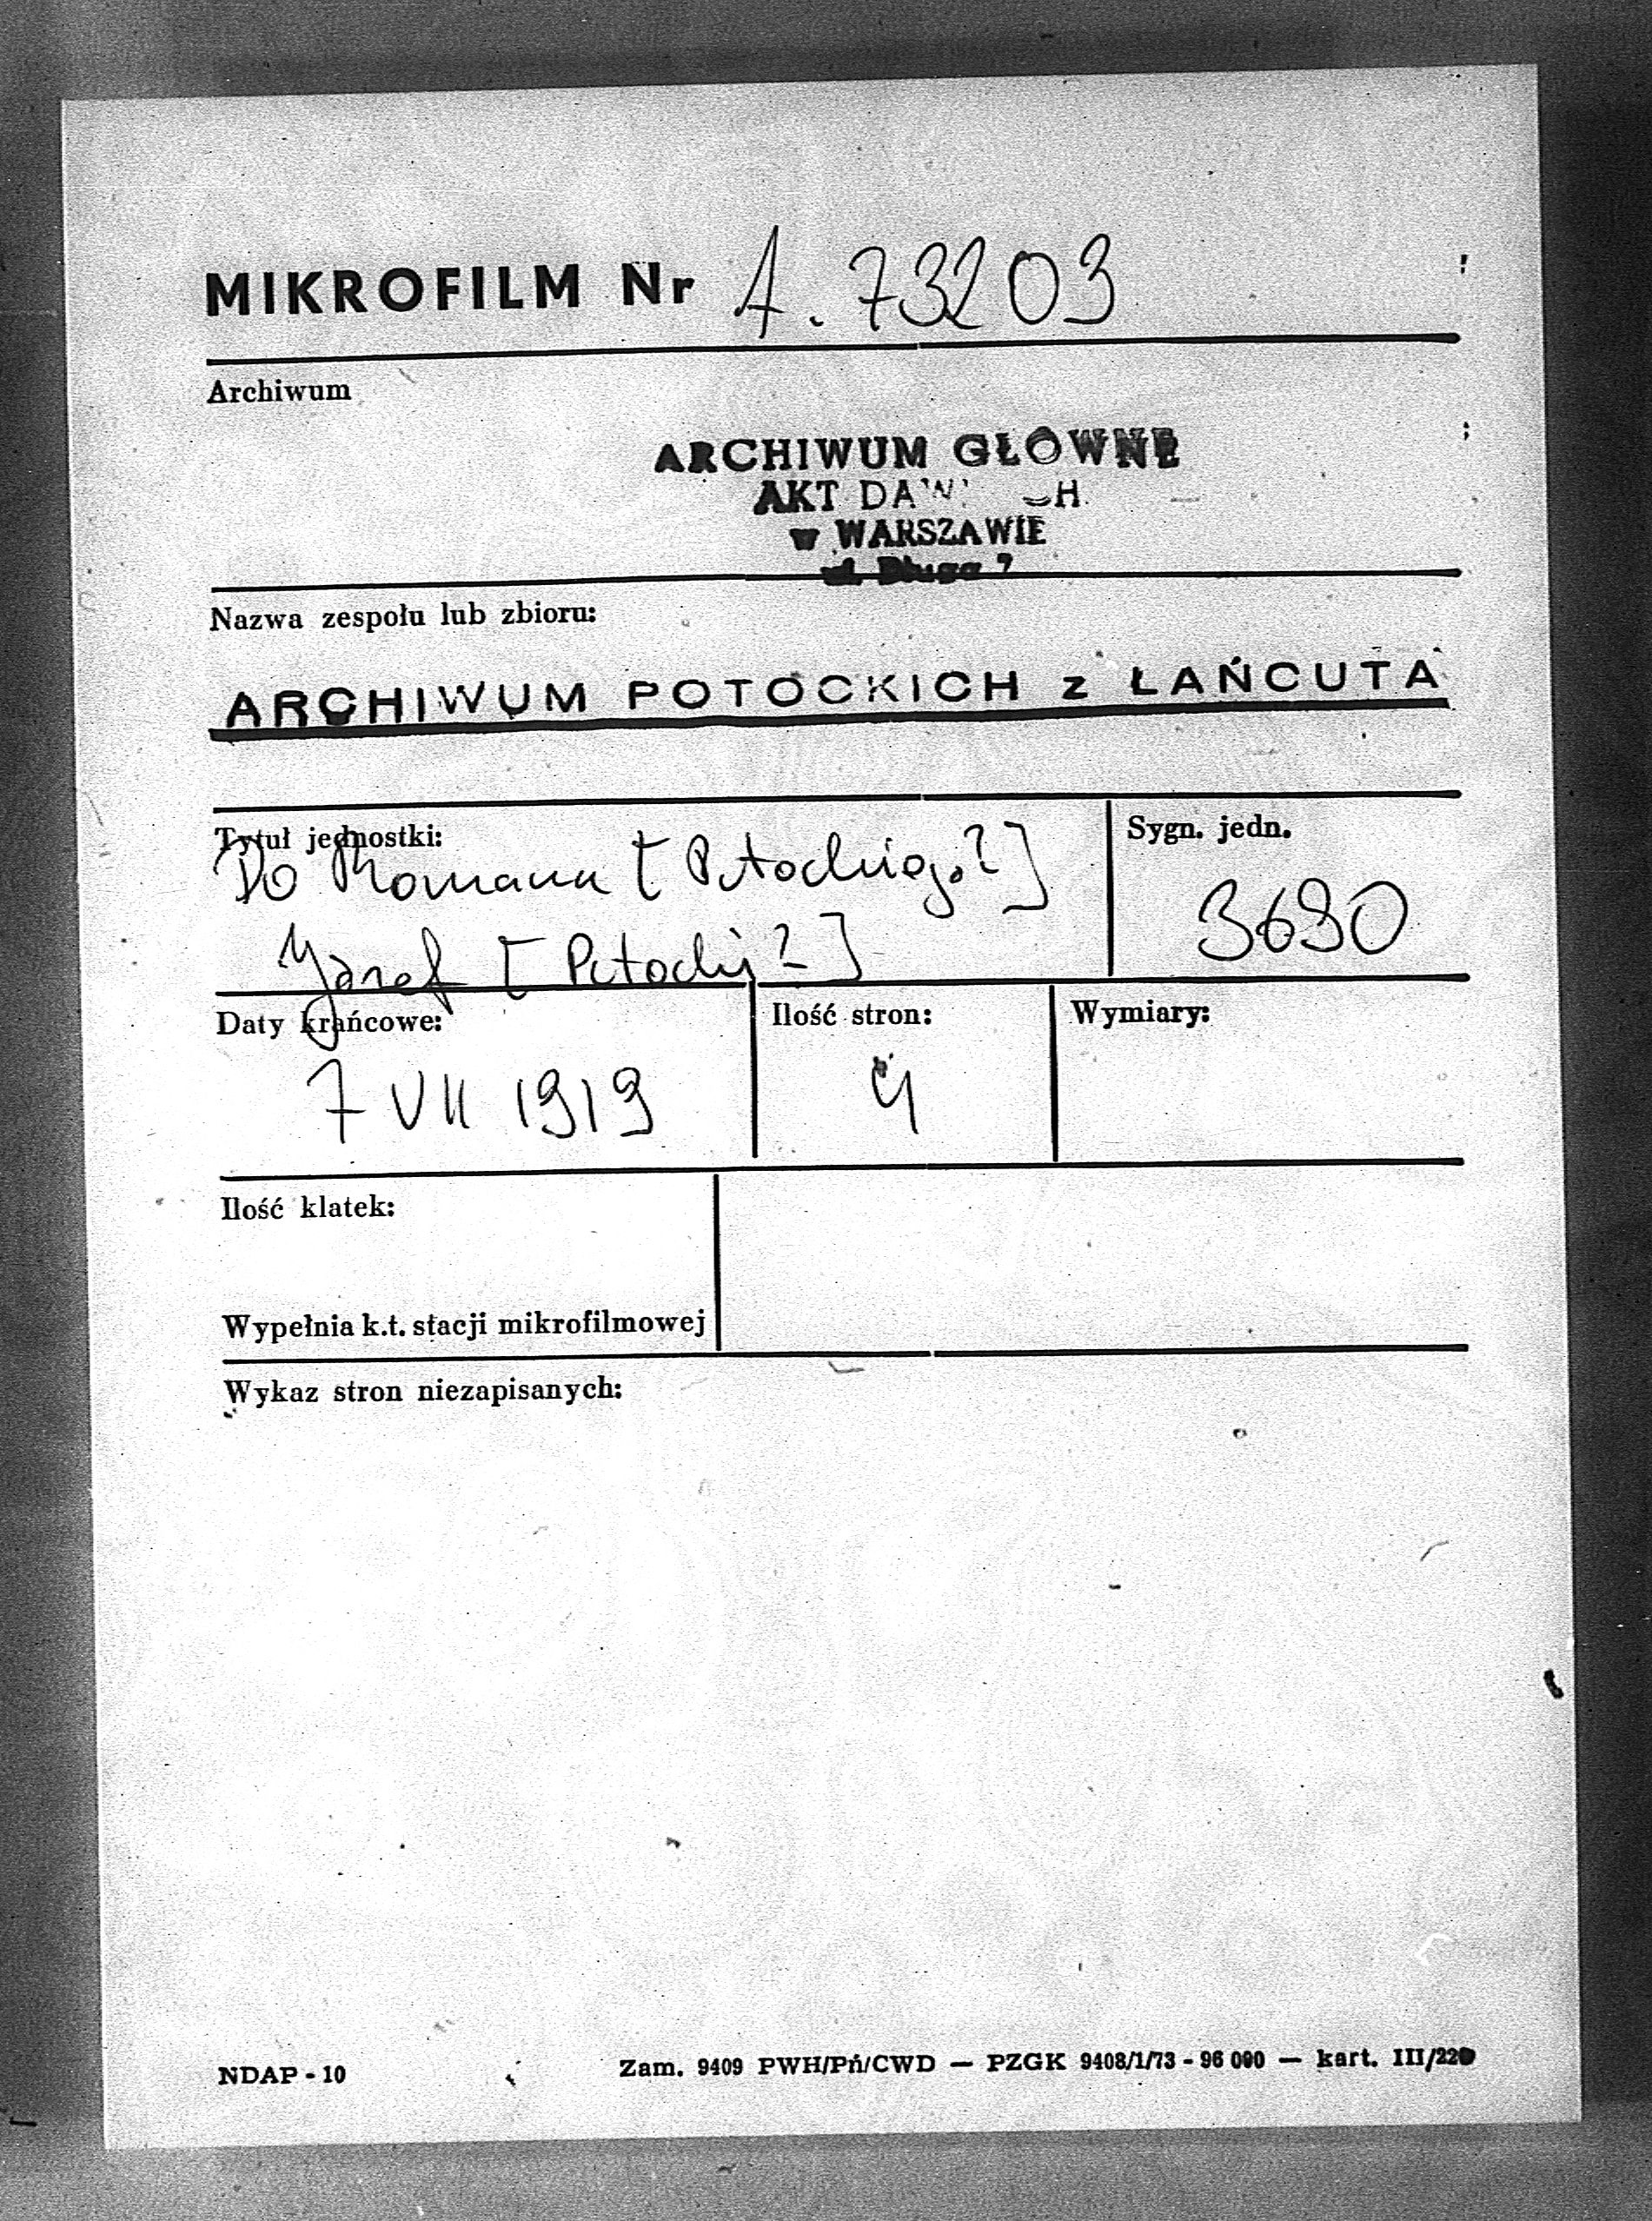 MIKROFILM Nr A. 73203
Archiwum
ARCHIWUM GŁÓWNE
AKT
w WARSZAWIE
ul. Długa 7
Nazwa zespołu lub zbioru:
ARCHIWUM POTOCKICH z ŁAŃCUTA
Tytuł jednostki:
Sygn. jedn.
Do Romana [Potockiego?]
Józef [Potocki?]
3690
Daty krańcowe:
Ilość stron:
Wymiary:
7 VII 1919
4
Ilość klatek:
Wypełnia k.t. stacji mikrofilmowej
Wykaz stron niezapisanych:
NDAP - 10
Zam. 9409 PWH/Pń/CWD — PZGK 9408/1/73 - 96 000 — kart. III/220